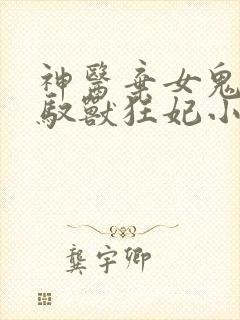 神醫棄女鬼
馭獸狂妃小
龔宇卿